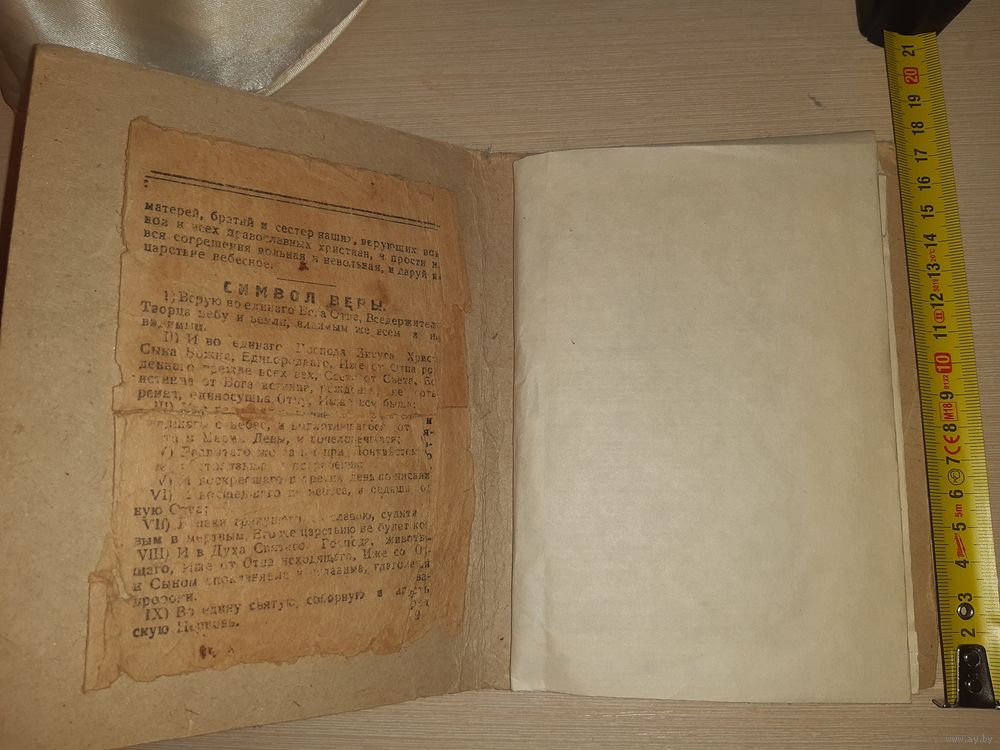 матерей, братий и сестер наших, верующих
и всех православных христиан, и прости
вся согрешения вольная и невольная, и даруй
царствие небесное.
СИМВОЛ ВЕРЫ.
I) Верую во единаго Бога Отца, Вседержителя
Творца небу и земли, видимым же всем и
видимым.
II) И во единаго Господа Иисуса Хрис
Сына Божия, Единороднаго, Иже от Отца ро
деннаго прежде всех век, Света от Света, Бо
истинна от Бога истинна, рожденна, не
ренна, единосущна Отцу, Им же вся быша;
с небес, и воплотившагося от
и Марии Девы, и вочеловечшася;
же за ны при Понтийстем
V) И воскресшаго в третий день по писани
VI) И восшедшаго на небеса, и седяща о
ную Отца;
VII) И паки грядущаго со славою, судити
вым и мертвым, Его же царствию не будет ко
VIII) И в Духа Святаго, Господа, животв
щаго, Иже от Отца исходящаго, Иже со От
и Сыном спокланяема и сславима, глаголавша
пророки.
IX) Во едину святую, соборную и
скую Церковь.
21
20
19
18
17
16
15
14
13
12
11
10
9
8
7
6
5
4
3
2
5m
CE
M18
0122
www.ay.by